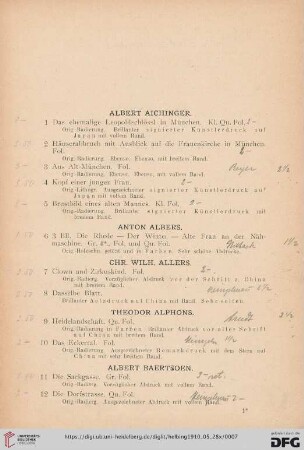 ALBERT AICHINGER.
1 Das ehemalige Leopoldschlössl in München. Kl. Qu. Fol. 2-
Orig.-Radierung. Brillanter signierter Künstlerdruck auf
Japan mit vollem Rand.
2 Häuserabbruch mit Ausblick auf die Frauenkirche in München.
Fol.
Orig.-Radierung. Ebenso. Ebenso, mit breitem Rand.
3 Aus Alt-München. Fol.
Orig.-Radierung. Ebenso. Ebenso, mit vollem Rand.
4 Kopf einer jungen Frau. 2-
Orig.-Lithogr. Ausgezeichneter signierter Künstlerdruck auf
Japan mit vollem Rand.
5 Brustbild eines alten Mannes. Kl. Fol. 2-
Orig.-Radierung. Brillanter signierter Künstlerdruck mit
breitem Rand.
ANTON ALBERS.
6 3 Bll. Die Rhede — Der Witwe — Alte Frau an der Näh-
maschine. Gr. 4°., Fol. und Qu. Fol.
Orig.-Holzschn. getönt und in Farben. Sehr schöne Drucke.
CHR. WILH. ALLERS.
7 Clown und Zirkuskind. Fol. 2-
Orig.-Radierg. Vorzüglicher Abdruck vor der Schrift a. China
mit breitem Rand.
8 Dasselbe Blatt.
Brillanter Aetzdruck auf China mit Rand. Sehr selten.
THEODOR ALPHONS.
9 Heidelandschaft. Qu. Fol.
Orig.-Radierung in Farben. Brillanter Abdruck vor aller Schrift
auf China mit breitem Rand.
10 Das Reiertal. Fol.
Orig.-Radierung. Ausgezeichneter Remarkdruck mit dem Stein auf
China mit sehr breitem Rand.
ALBERT BAERTSOEN.
11 Die Sackgasse. Gr. Fol.
Orig.-Radierg. Vorzüglicher Abdruck mit vollem Rand.
12 Die Dorfstrasse. Qu. Fol.
Orig.-Radierg. Ausgezeichneter Abdruck mit vollem Rand.
1*
https://digi.ub.uni-heidelberg.de/diglit/helbing1910_05_28x/0007
UNIVERSITÄTS-
BIBLIOTHEK
HEIDELBERG